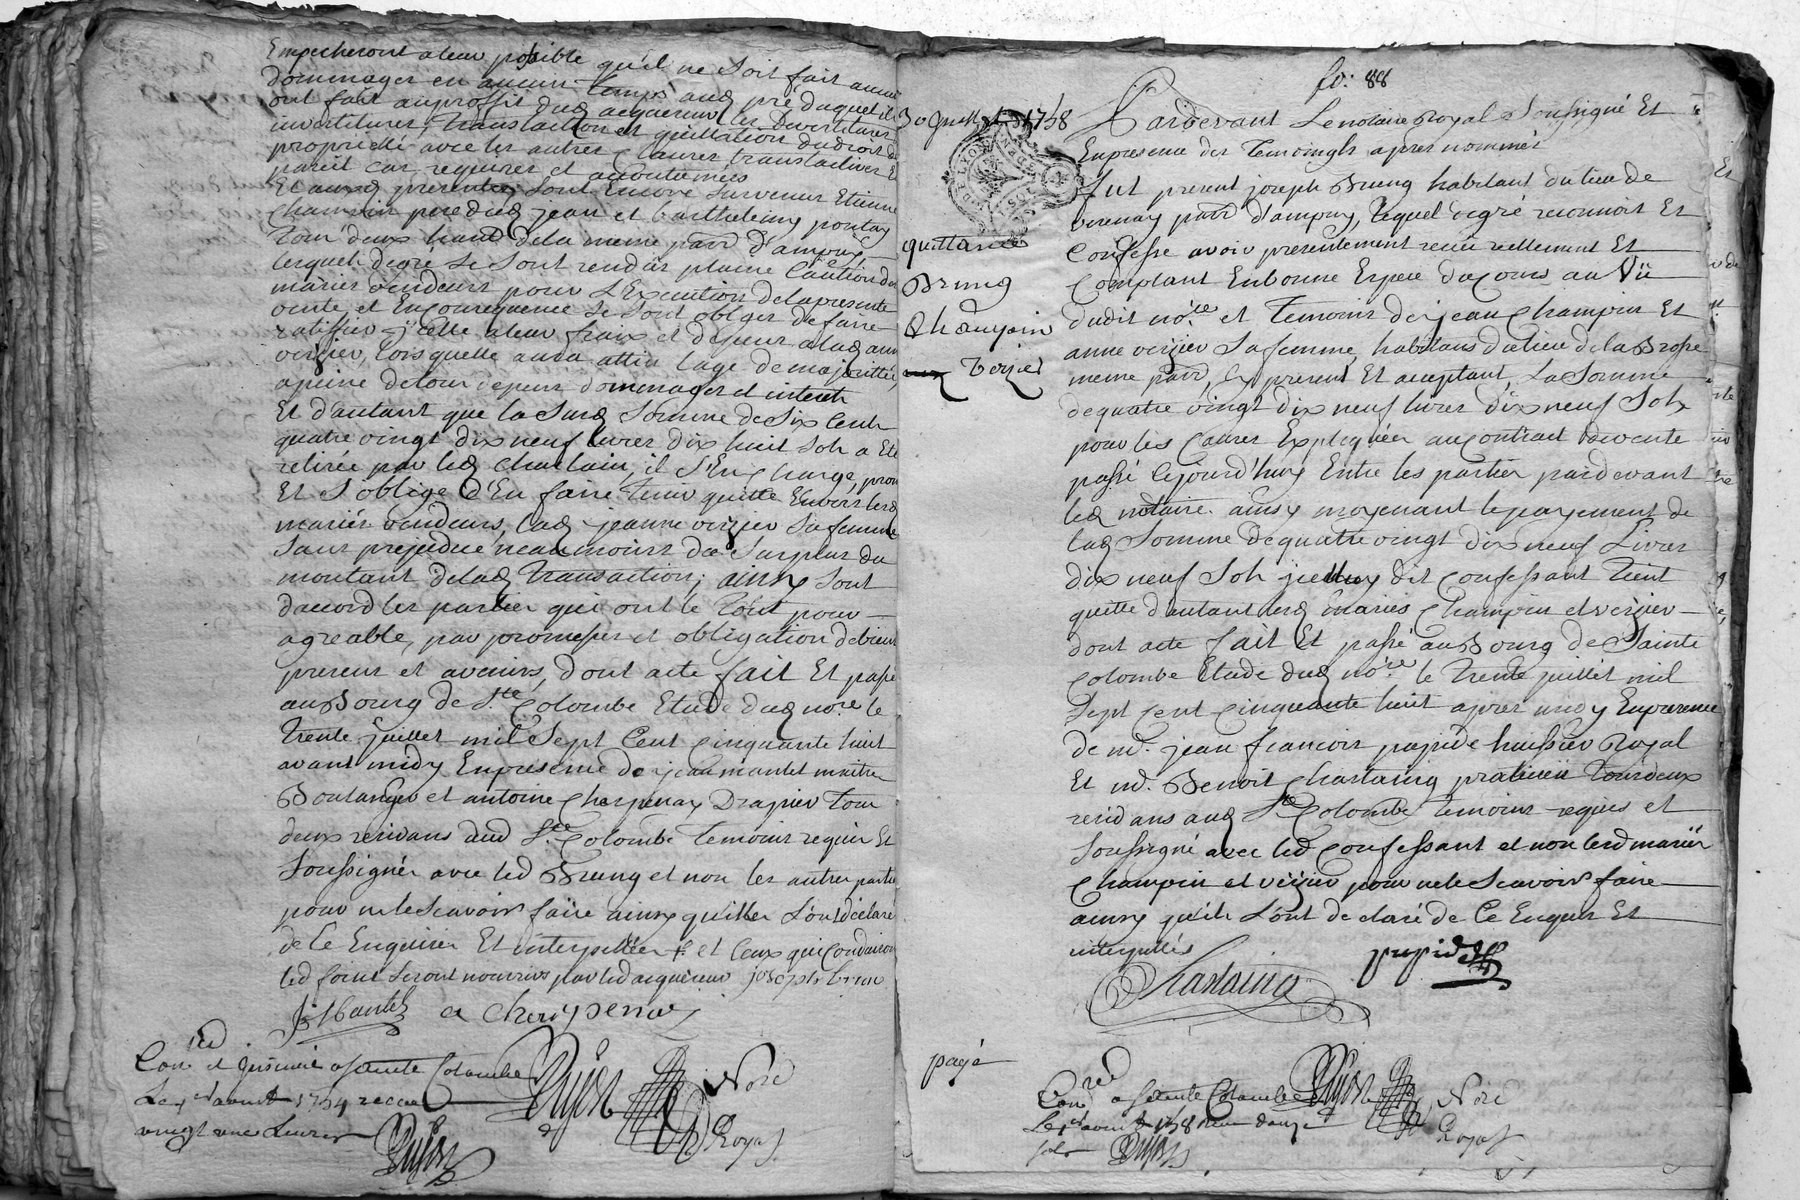 Empecheront a leur possible qu'il ne Soit fait aucun
dommages en aucun temps aud pré duquel il
ont fait au proffit dud acquereur les Devestitures
investitures, translation et quittation du droit de
proprieté avec les autres clauses translatives Et
pareil cas requises et accoutumées
Et aux presentes sont Encore Survenus Etienne
Champin pere dud jean et barthelemy pontay
Tous deux hant de la meme parr d'ampuis,
lesquel degré se sont rendus plaine Caution des
mariés vendeurs pour L'Execution de la presente
vente et En consequence se sont obligés de faire
ratiffier icelle a leur fraix et depens a lad anne
verzier, lorsquelle aura attin l'age de majorité,
a peine de tous depens dommages et interets
Et d'autant que la Susd Somme de Six Cents
quatre vingt dix neuf livres dix huit Sols a Eté
retirée par led Chastain, il S'En charge, promet
Et S'oblige d'En faire Tenir quitte Envers lesd
mariés vendeurs, lad jeanne verzier Sa femme
Sans prejudice neanmoins du Surplus du
montant de lad Transaction; ainsy Sont
d'accord les parties qui ont le Tout pour
agreable, par promesses et obligation de biens
presens et avenirs, dont acte fait Et passé
au Bourg de Ste Colombe Etude dud nore le
Trente juillet mil Sept Cent Cinquante huit
avant midy En presence de jean mantet maitre
Boulanger et antoine Cherpenay Drapier Tous
deux residans aud Ste Colombe Temoins requis Et
Soussignés avec led Brung et non les autres parties
pour ne le Scavoir faire ainsy qu'illes L'ont déclaré
de Ce Enquises Et interpellées et Ceux qui conduiront
led foins seront nourris par led acquereur joseph brun
J Mantet a Cherpenay
Conrollé et Insinué a Sainte Colombe
Le 1er aoust 1758 recu
vingt une Livres
Dujon
Dujon Nore
Royal
fo: 88
30 juillet 1758
quittance
Brung
Champin
Verzier
payé
Pardevant Le notaire Royal Soussigné Et
En presence des Temoingts apres nommés
fut present joseph Brung habitant du lieu de
verenay parr d'ampuy, lequel degré reconnoit Et
Confesse avoir presentement receu reellement Et
Comptant En bonne Espece du cours au Vû
dudit nore et Temoins de jean Champin Et
anne verzier Sa femme, habitans du lieu de la Brosse
meme parr, Cy present Et acceptant, La Somme
de quatre vingt dix neuf livres dix neuf Sols
pour les Causes Expliquées au contract de vente
passé Cejourd'huy Entre les parties pardevant
led notaire. ainsy moyenant le payement de
lad Somme de quatre vingt dix neuf Livres
dix neuf Sols jcelluy dit Confessant Tient
quitte d'autant lesd mariés Champin et verzier
dont acte fait Et passé au Bourg de Sainte
Colombe Etude dud nore le Trente juillet mil
Sept Cent Cinquante huit apres midy En presence
de m. jean françois papide huissier Royal
Et m. Benoit Chastaing praticien Tous deux
residans aud Ste Colombe Temoins requis et
Soussigné avec led Confessant et non lesd mariés
Champin et verzier pour ne le Scavoir faire
ainsy qu'ils L'ont declaré de Ce Enquis Et
interpellés
Chastaing
Conré a Sainte Colombe
Le 1er aoust 1758 recu douze
sols
Dujon
Dujon Nore
Royal